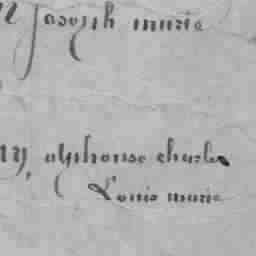 Joseph marie
alphonse charles
Louis marie